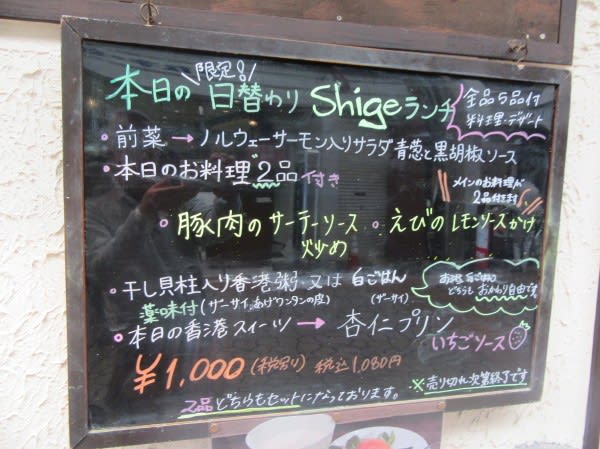 限定!
本日の 日替わり Shigeランチ
全品5品付
料理・デザート
・前菜 → ノルウェーサーモン入りサラダ 青葱と黒胡椒ソース
・本日のお料理2品付き
メインのお料理が
2品付きます!
・豚肉のサーテーソース炒め ・えびのレモンソースがけ
・干し貝柱入り香港粥・又は 白ごはん
薬味付(ザーサイ、あげワンタンの皮) (ザーサイ)
お粥、白ごはん
どちらもおかわり自由です
・本日の香港スイーツ → 杏仁プリン
いちごソース
¥1,000(税別) 税込1,080円
※売り切れ次第終了です
2品どちらもセットになっております。